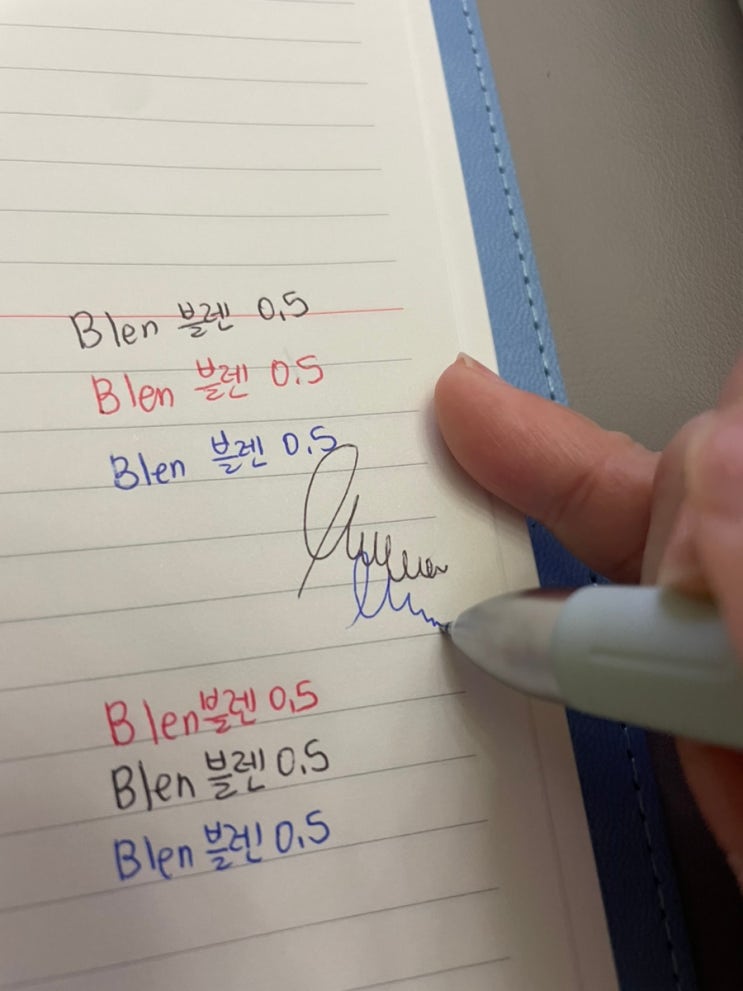 Blen 블렌 0.5
Blen 블렌 0.5
Blen 블렌 0.5
Blen 블렌 0.5
Blen 블렌 0.5
Blen 블렌 0.5